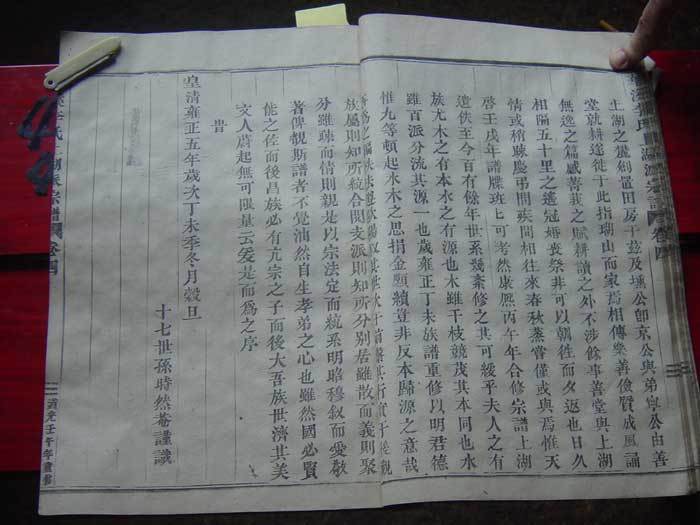 上湖之麓剏置田房于茲及壎公卽京公與弟寧公由善
堂就耕遂徙于此指瑚山而家焉相傳樂善儉賢成風誦
無逸之篇感蓼莪之賦耕讀之外不涉餘事善堂與上湖
相隔五十里之遙冠婚喪祭非可以朝往而夕返也日久
情或稍疎慶弔問疾間相往來春秋蒸嘗僅或與焉惟天
啓壬戌年譜牒班班可考然康熙丙午年合修宗譜上湖
遺佚至今百有餘年世系幾紊修之其可緩乎夫人之有
族尤木之有本水之有源也木雖千枝競茂其本同也水
雖百派分流其源一也歲雍正丁未族譜重修以明君德
惟九等頓起水木之思捐金願續豈非反本歸源之意哉
族屬則知所統合閱支派則知所分別居雖散而義則聚
分雖疎而情則親是以宗法定而統系明昭穆叙而愛敬
著俾覩斯譜者不覺油然自生孝弟之心也雖然國必賢
能之佐而後昌族必有亢宗之子而後大吾族世濟其美
文人蔚起無可限量云爰是而爲之序
旹
皇清雍正五年歲次丁未季冬月穀旦
十七世孫時然菴謹識
李氏上湖派宗譜 卷四
道光壬午年重修